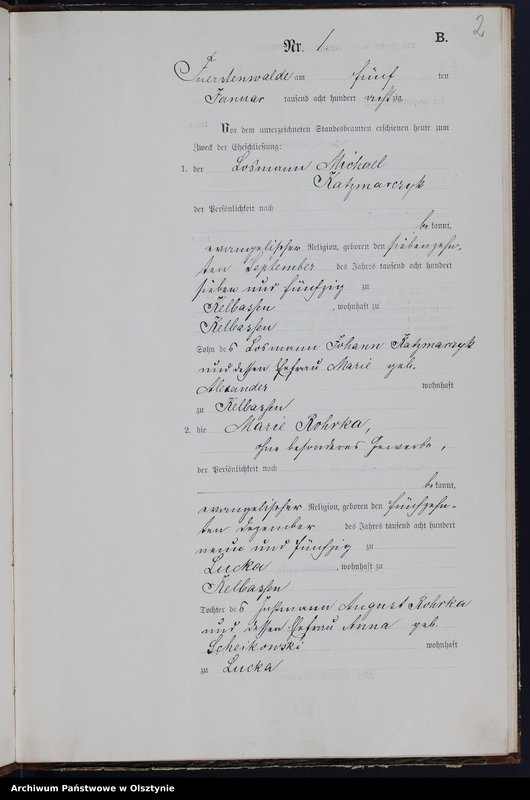 2
Nr. 1 B.
Fuerstenwalde am fünf ten
Januar tausend acht hundert achtzig
Vor dem unterzeichneten Standesbeamten erschienen heute zum
Zweck der Eheschließung:
1. der Losmann Michael
Katzmarczyk
der Persönlichkeit nach
be kannt,
evangelischer Religion, geboren den siebenzehn-
ten September des Jahres tausend acht hundert
sieben und fünfzig zu
Kelbassen, wohnhaft zu
Kelbassen
Sohn des Losmann Johann Katzmarczyk
und dessen Ehefrau Marie geb.
Alexander wohnhaft
zu Kelbassen
2. die Marie Rohrka,
ohne besonderes Gewerbe,
der Persönlichkeit nach
be kannt,
evangelischer Religion, geboren den fünfzehn-
ten Dezember des Jahres tausend acht hundert
neun und fünfzig zu
Lucka, wohnhaft zu
Kelbassen
Tochter des August Rohrka
und dessen Ehefrau Anna geb.
Scheikowski wohnhaft
zu Lucka
Archiwum Państwowe w Olsztynie